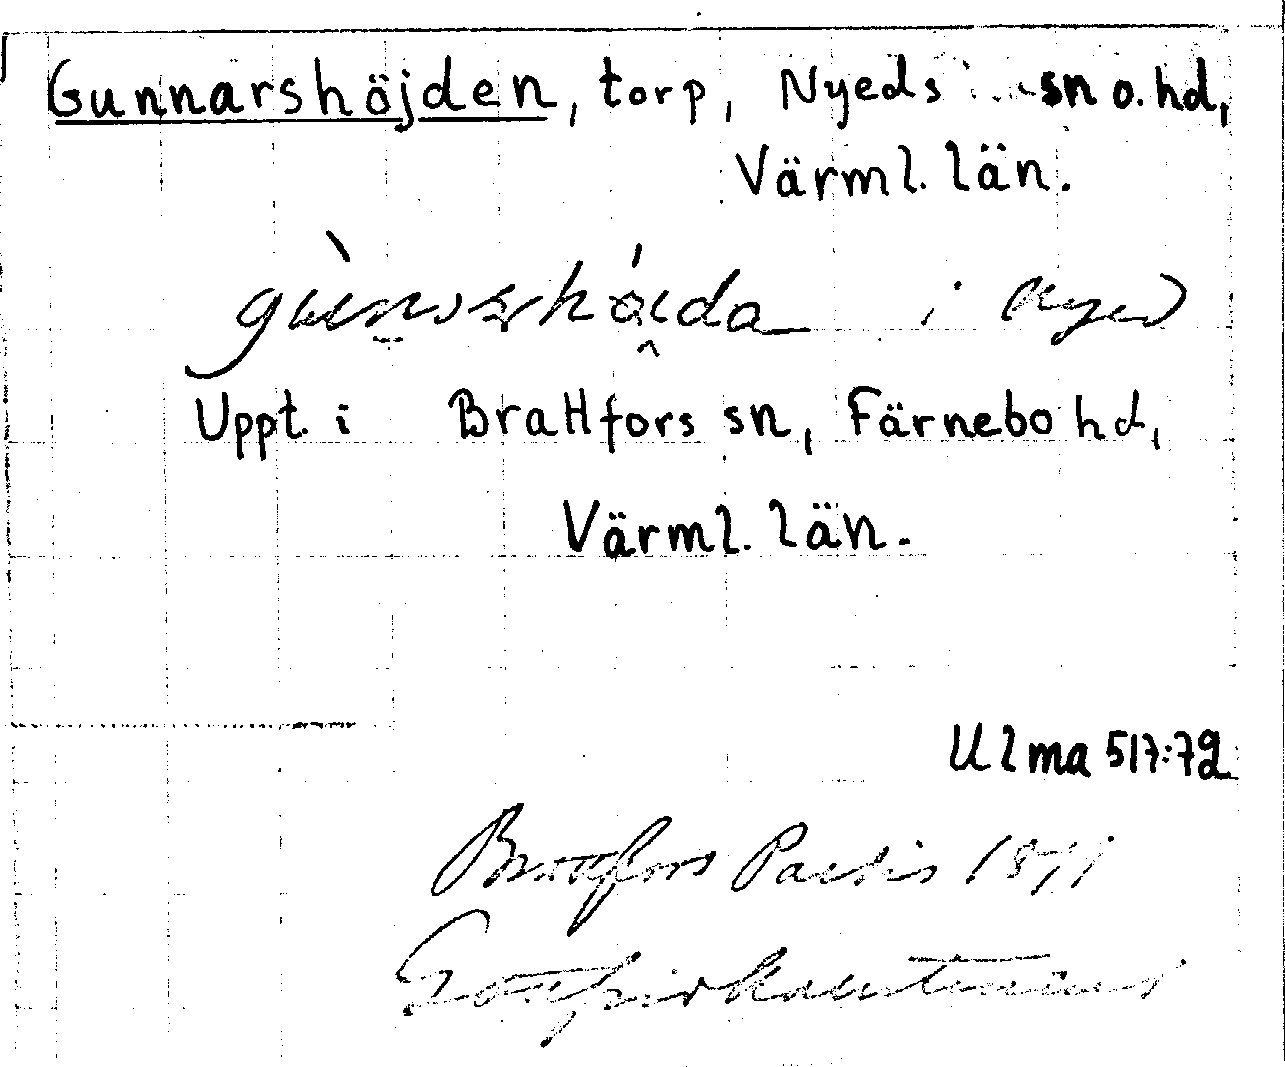 Gunnarshöjden, torp, Nyeds sn o. hd,
Värml. län.
i Nyed
Uppt. i Brattfors sn, Färnebo hd,
Värml. län.
Ulma 517:72
Brattfors 1871